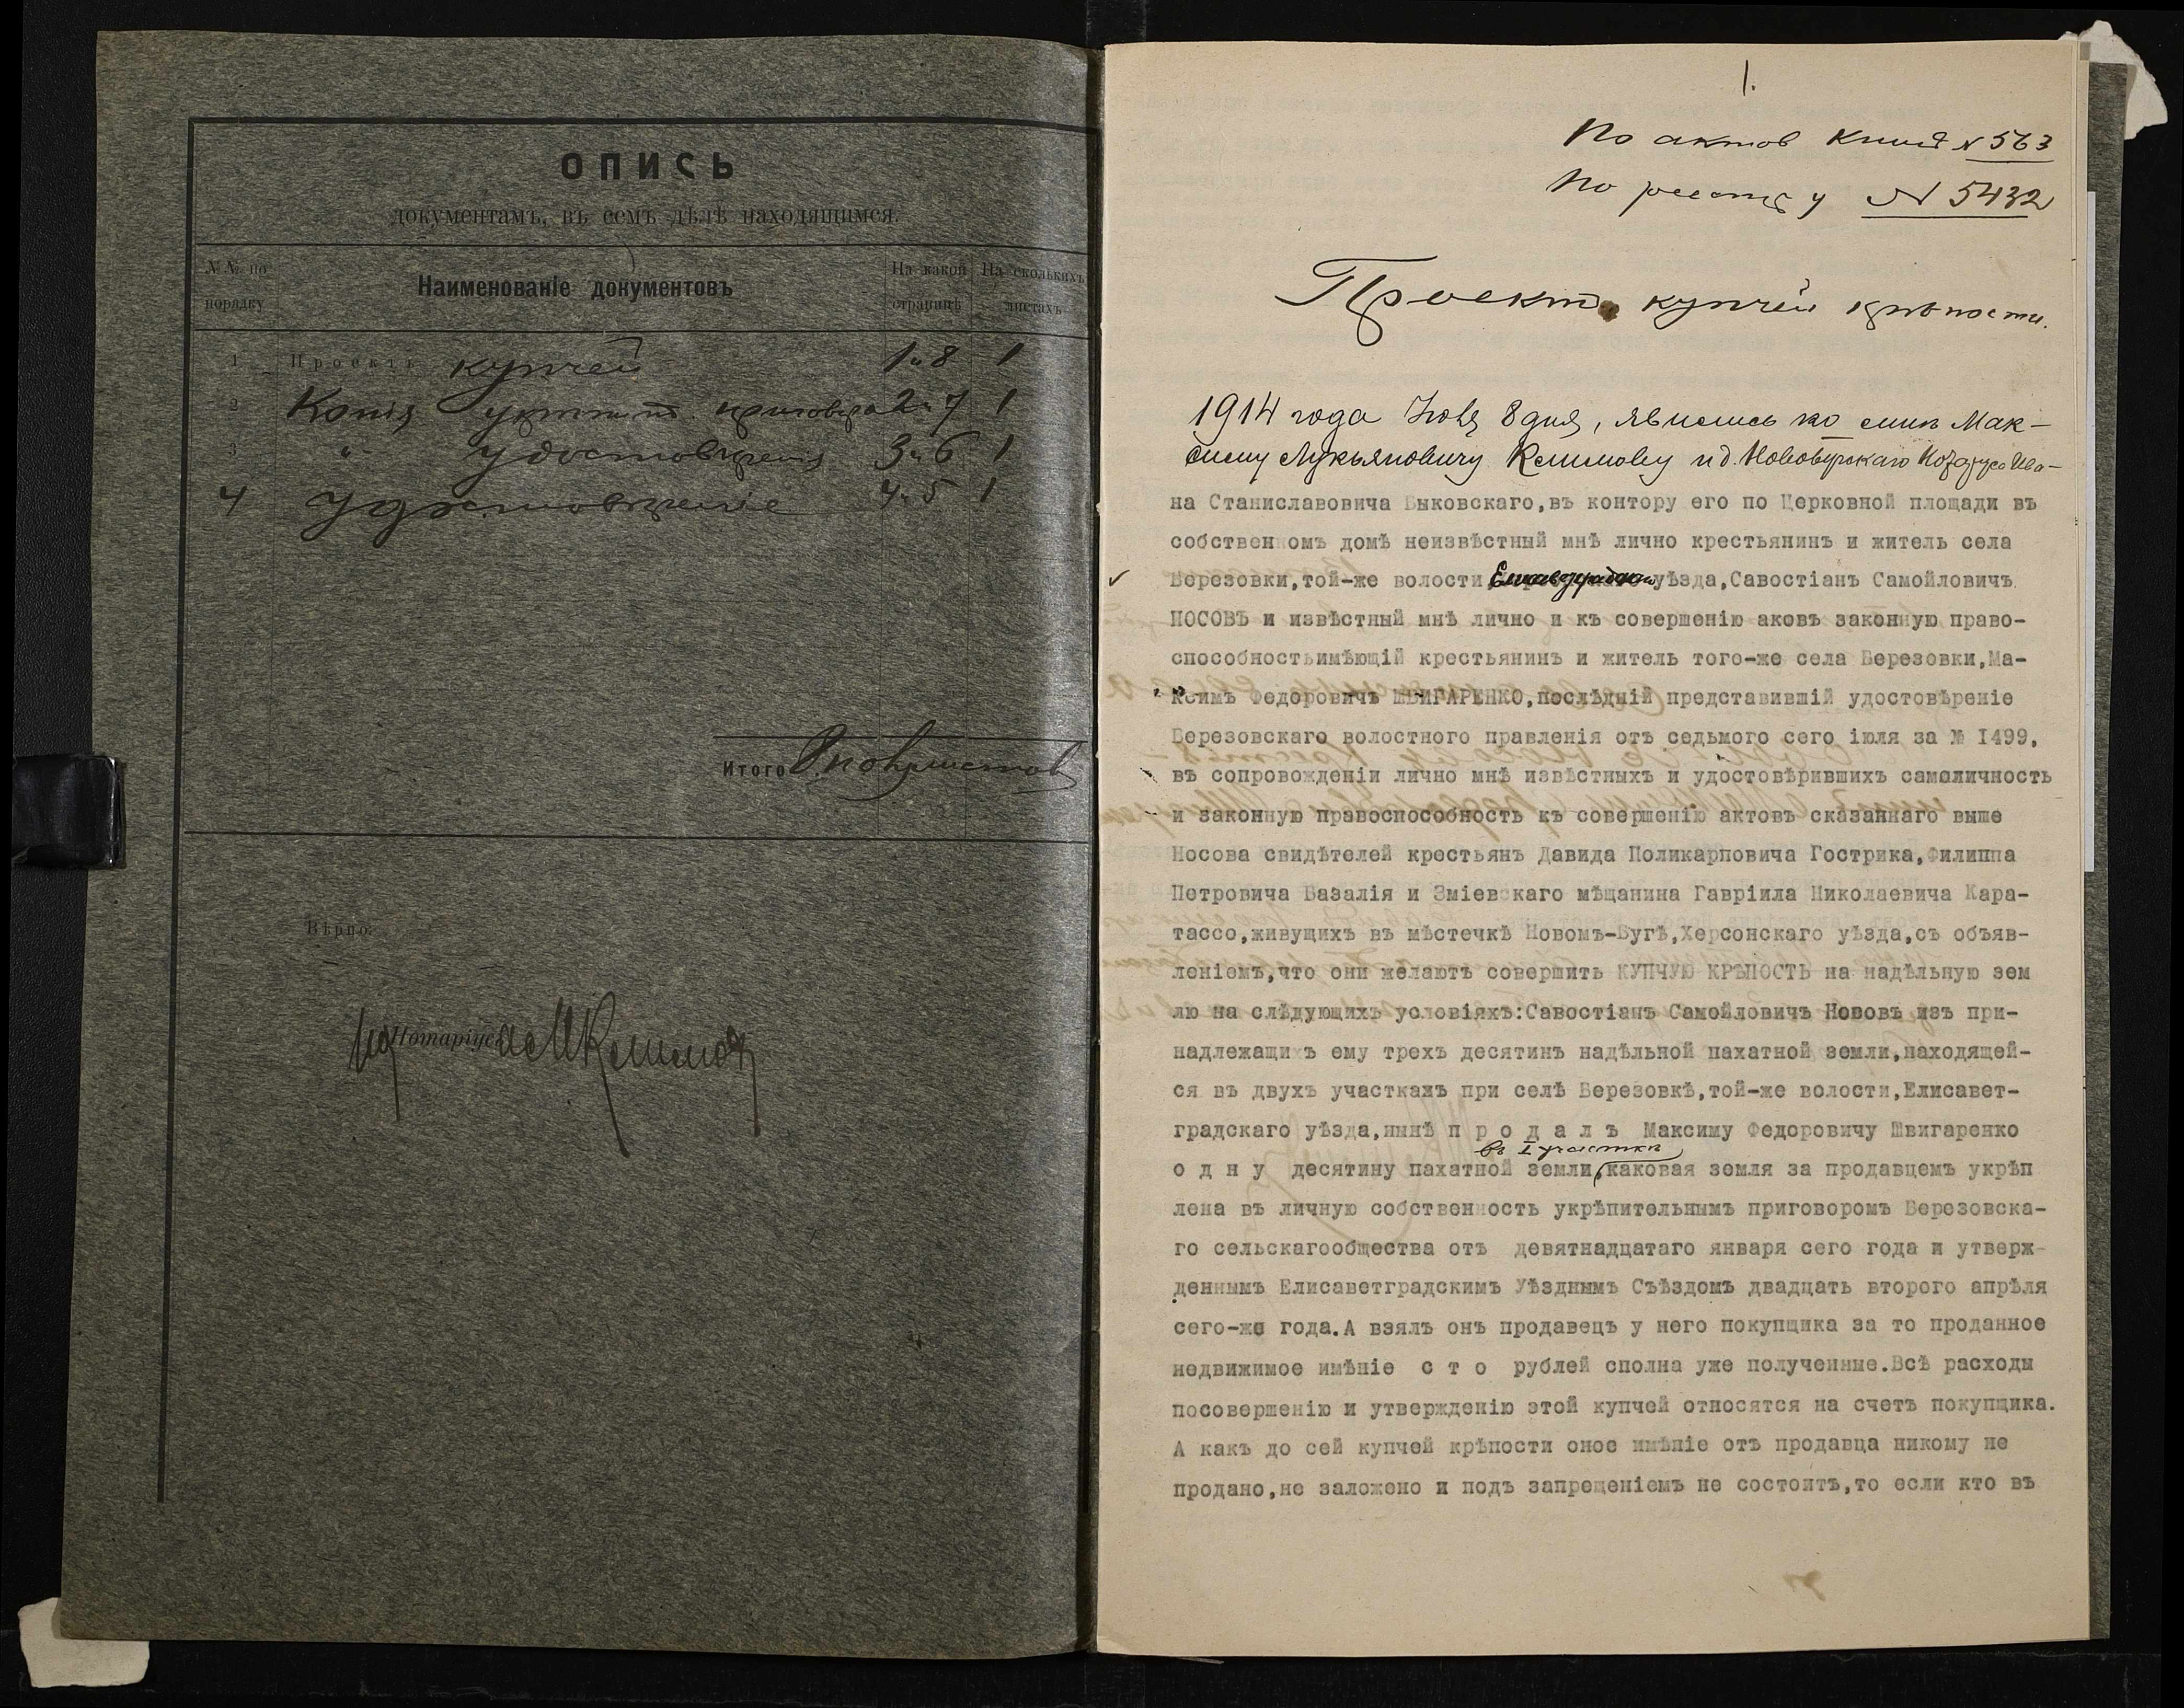 ОПИСЬ
документамъ, въ семъ дѣлѣ находящимся.
№№ по порядку
Наименованіе документовъ
На какой страницѣ
На сколькихъ листахъ
1 Проектъ купчей 1 и 8 1
2 Копія укрѣпит. приговора 2 и 7 1
3 " удостовѣренія 3 и 6 1
4 Удостовѣреніе 4 и 5 1
Итого
Вѣрно:
Нотаріуса
1.
По актов книгѣ № 563
По реестру № 5432
Проектъ купчей крѣпости.
1914 года Іюля 8 дня, явились ко мнѣ Мак-
симу Лукьяновичу Климову и д. Новобугскаго Нотаріуса Ива-
на Станиславовича Быковскаго,въ контору его по Церковной площади въ
собственномъ домѣ неизвѣстный мнѣ лично крестьянинъ и житель села
Березовки,той-же волости, Елисаветградскаго уѣзда,Савостіанъ Самойловичъ
НОСОВЪ и извѣстный мнѣ лично и къ совершенію аковъ законную право-
способностьимѣющій крестьянинъ и житель того-же села Березовки,Ма-
ксимъ Федоровичъ ШВИГАРЕНКО,послѣдній представившій удостовѣреніе
Березовскаго волостного правленія отъ седьмого сего іюля за № I499,
въ сопровожденіи лично мнѣ извѣстныхъ и удостовѣрившихъ самоличность
и законную правоспособность къ совершенію актовъ сказаннаго выше
Носова свидѣтелей крестьянъ Давида Поликарповича Гострика,Филиппа
Петровича Базалія и Зміевскаго мѣщанина Гавріила Николаевича Кара-
тассо,живущихъ въ мѣстечкѣ Новомъ-Бугѣ,Херсонскаго уѣзда,съ объяв-
леніемъ,что они желаютъ совершить КУПЧУЮ КРѢПОСТЬ на надѣльную зем
лю на слѣдующихъ условіяхъ:Савостіанъ Самойловичъ Нововъ изъ при-
надлежащихъ ему трехъ десятинъ надѣльной пахатной земли,находящей-
ся въ двухъ участкахъ при селѣ Березовкѣ,той-же волости,Елисавет-
градскаго уѣзда,нынѣ п р о д а л ъ Максиму Федоровичу Швигаренко
въ I участкѣ
о д н у десятину пахатной земли,каковая земля за продавцемъ укрѣп
лена въ личную собственность укрѣпительнымъ приговоромъ Березовска-
го сельскагообщества отъ девятнадцатаго января сего года и утверж-
деннымъ Елисаветградскимъ Уѣзднымъ Съѣздомъ двадцать второго апрѣля
сего-же года.А взялъ онъ продавецъ у него покупщика за то проданное
недвижимое имѣніе с т о рублей сполна уже полученные.Всѣ расходы
посовершенію и утвержденію этой купчей относятся на счетъ покупщика.
А какъ до сей купчей крѣпости оное имѣніе отъ продавца никому не
продано,не заложено и подъ запрещеніемъ не состоитъ,то если кто въ